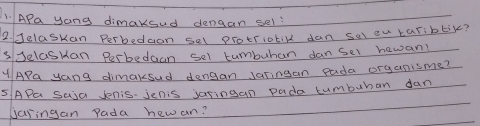 1. APa yang dimaksud dengan sel?
2. Jelaskan Perbedaan sel Protriotik dan sel eukaribtik?
3 Jelaskan Perbedaan sel tumbuhan dan sel hewan!
4 APa yang dimaksud dengan Jaringan Pada organisme?
5 APa saja Jenis-Jenis Jaringan Pada tumbuhan dan
Jaringan Pada hewan?